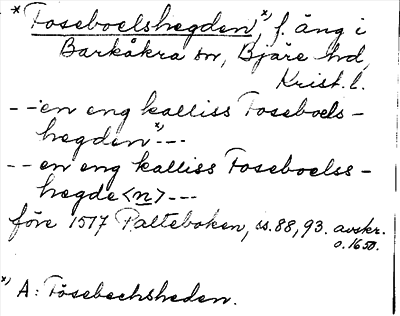 *Foseboelshegden,*) f. äng i
Barkåkra sn, Bjäre hd,
Krist. l.
--en eng kalliss Foseboels-
hegden*)---
--en eng kalliss Foseboelss-
hegde<n>---
före 1517 Palteboken, ss. 88, 93. avskr.
o. 1650.
*) A: Fösebechsheden.